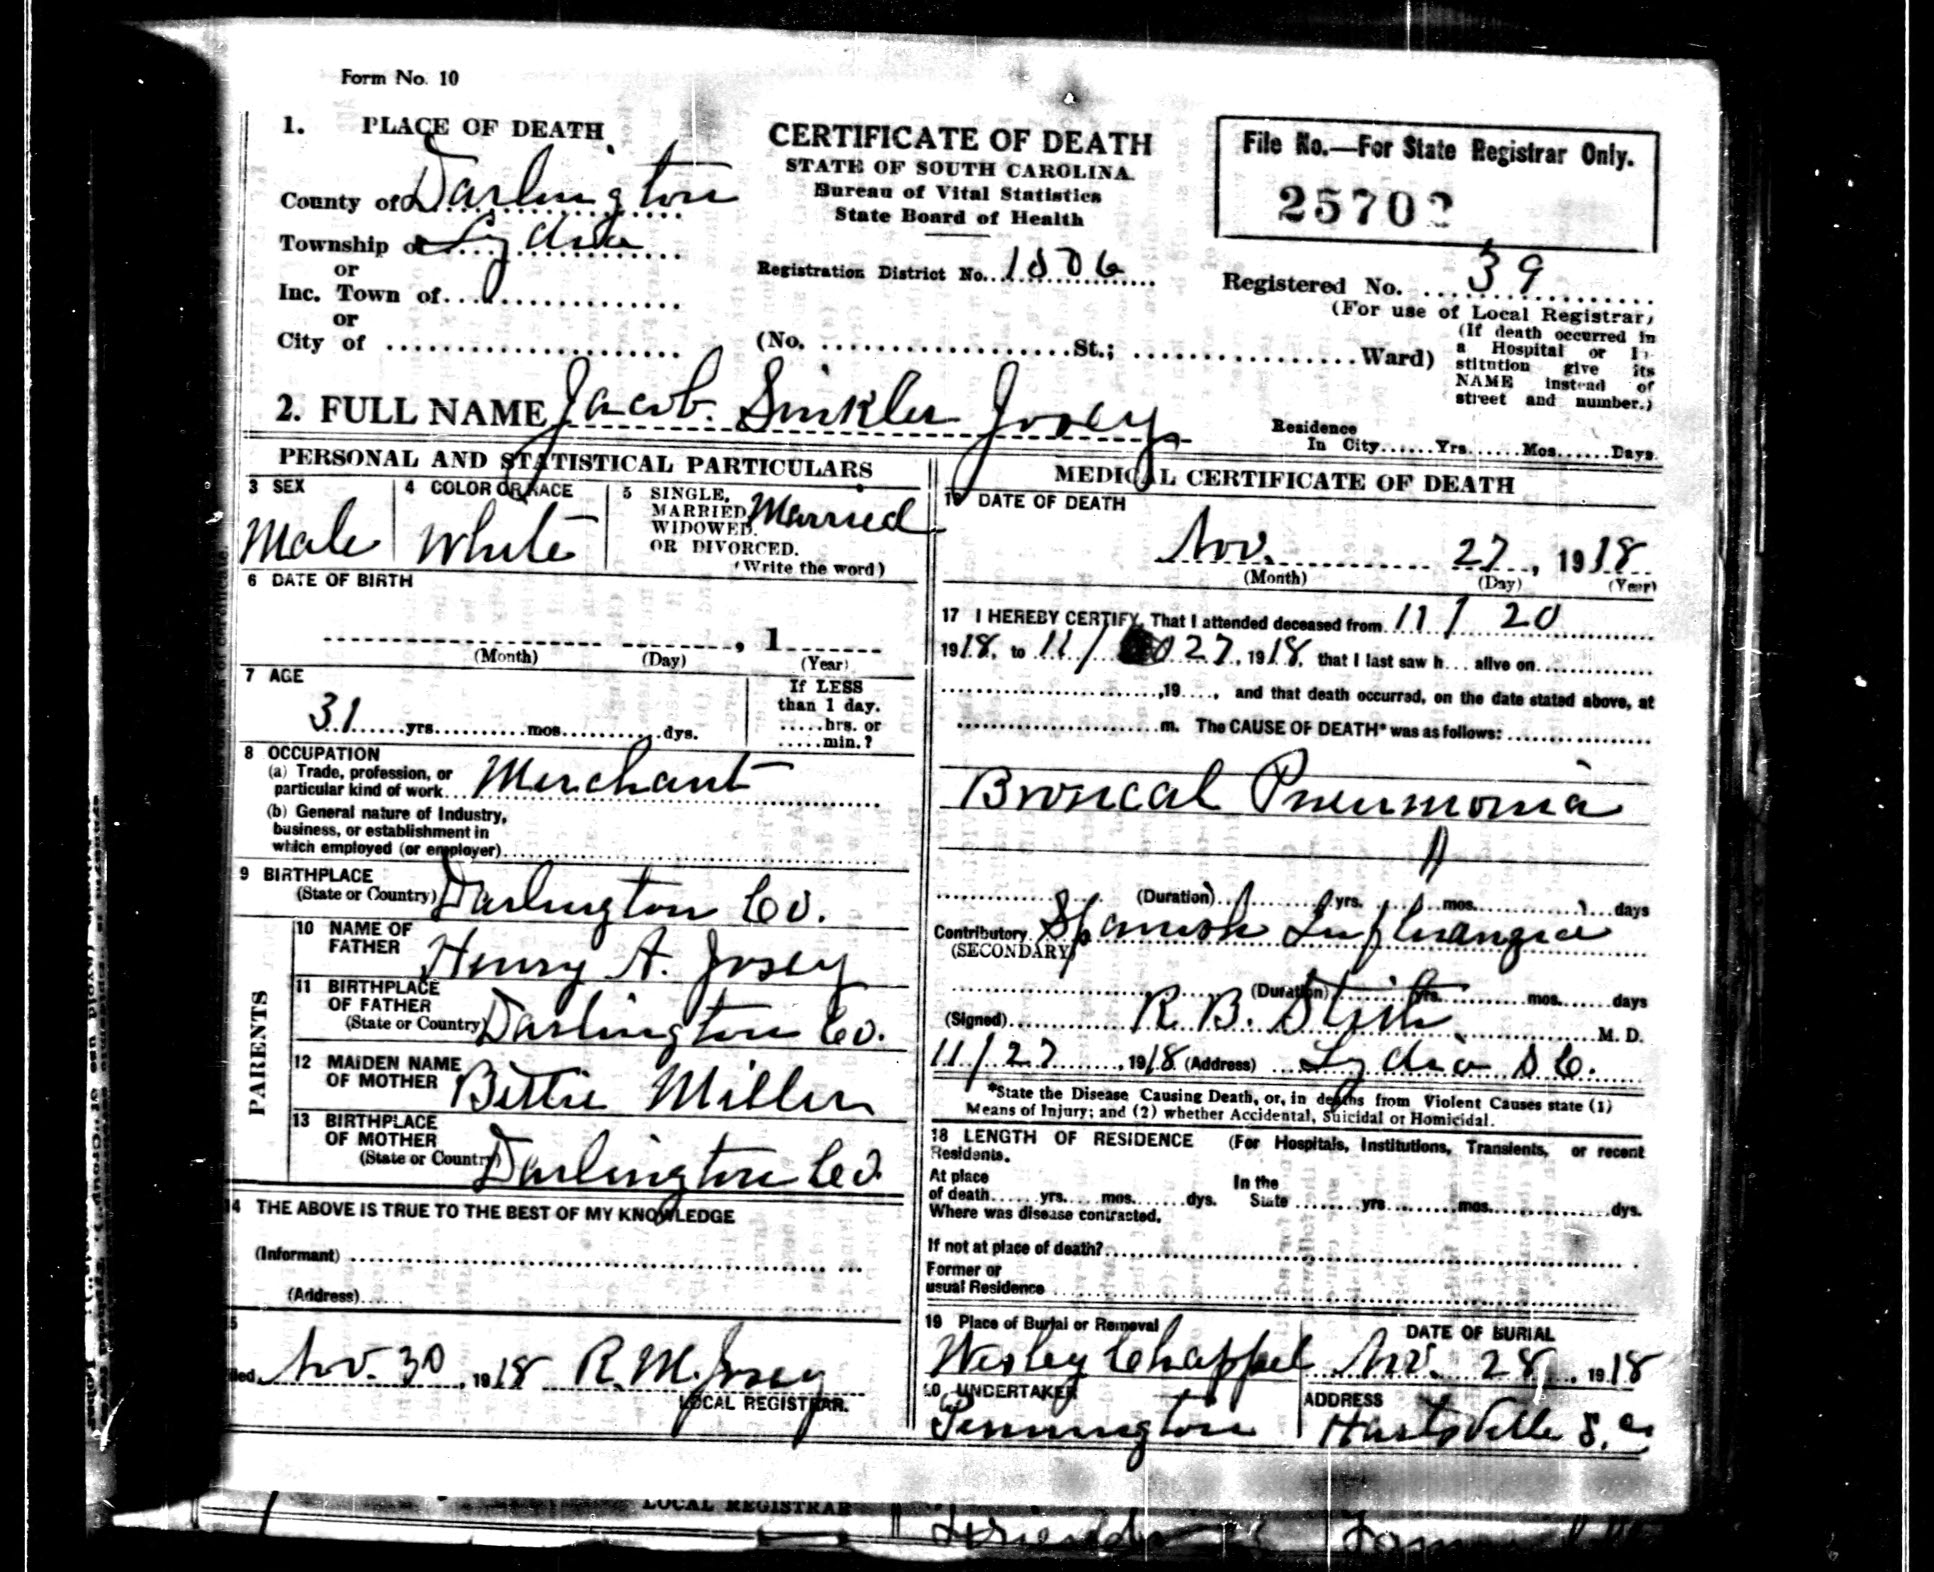 Form No. 10
1. PLACE OF DEATH
County of Darlington
Township of Lydia
or
Inc. Town of
or
City of
CERTIFICATE OF DEATH
STATE OF SOUTH CAROLINA
Bureau of Vital Statistics
State Board of Health
Registration District No. 1506
File No.—For State Registrar Only.
25702
Registered No. 39
(For use of Local Registrar)
(No. St.; Ward)
(If death occurred in
a Hospital or In-
stitution give its
NAME instead of
street and number.)
2. FULL NAME Jacob Sinkler Josey
Residence
In City Yrs. Mos. Days
PERSONAL AND STATISTICAL PARTICULARS
3 SEX
Male
4 COLOR OR RACE
White
5 SINGLE, MARRIED, WIDOWED, OR DIVORCED. Married
(Write the word)
6 DATE OF BIRTH
, 1
(Month) (Day) (Year)
7 AGE
31 yrs. mos. dys.
If LESS
than 1 day.
hrs. or
min.?
8 OCCUPATION
(a) Trade, profession, or
particular kind of work Merchant
(b) General nature of Industry,
business, or establishment in
which employed (or employer)
9 BIRTHPLACE
(State or Country) Darlington Co.
PARENTS
10 NAME OF
FATHER Henry A. Josey
11 BIRTHPLACE
OF FATHER
(State or Country) Darlington Co.
12 MAIDEN NAME
OF MOTHER Bettie Miller
13 BIRTHPLACE
OF MOTHER
(State or Country) Darlington Co.
14 THE ABOVE IS TRUE TO THE BEST OF MY KNOWLEDGE
(Informant)
(Address)
Nov. 30, 1918 R. M. Josey
LOCAL REGISTRAR.
MEDICAL CERTIFICATE OF DEATH
16 DATE OF DEATH
Nov. 27, 1918
(Month) (Day) (Year)
17 I HEREBY CERTIFY, That I attended deceased from 11/20
1918, to 11/ 27, 1918, that I last saw h... alive on
,19...., and that death occurred, on the date stated above, at
m. The CAUSE OF DEATH* was as follows:
Broncal Pneumonia
(Duration) yrs. mos. days
Contributory Spanish Influangia
(SECONDARY)
(Duration) yrs. mos. days
(Signed) R. B. Stith M. D.
11/27, 1918 (Address) Lydia S.C.
*State the Disease Causing Death, or, in deaths from Violent Causes state (1)
Means of Injury; and (2) whether Accidental, Suicidal or Homicidal.
18 LENGTH OF RESIDENCE (For Hospitals, Institutions, Transients, or recent
Residents.
At place
of death yrs. mos. dys.
In the
State yrs. mos. dys.
Where was disease contracted,
If not at place of death?
Former or
usual Residence
19 Place of Burial or Removal
Wesley Chappel
DATE OF BURIAL
Nov. 28, 1918
20 UNDERTAKER
Pennington
ADDRESS
Hartsville S.C.
LOCAL REGISTRAR